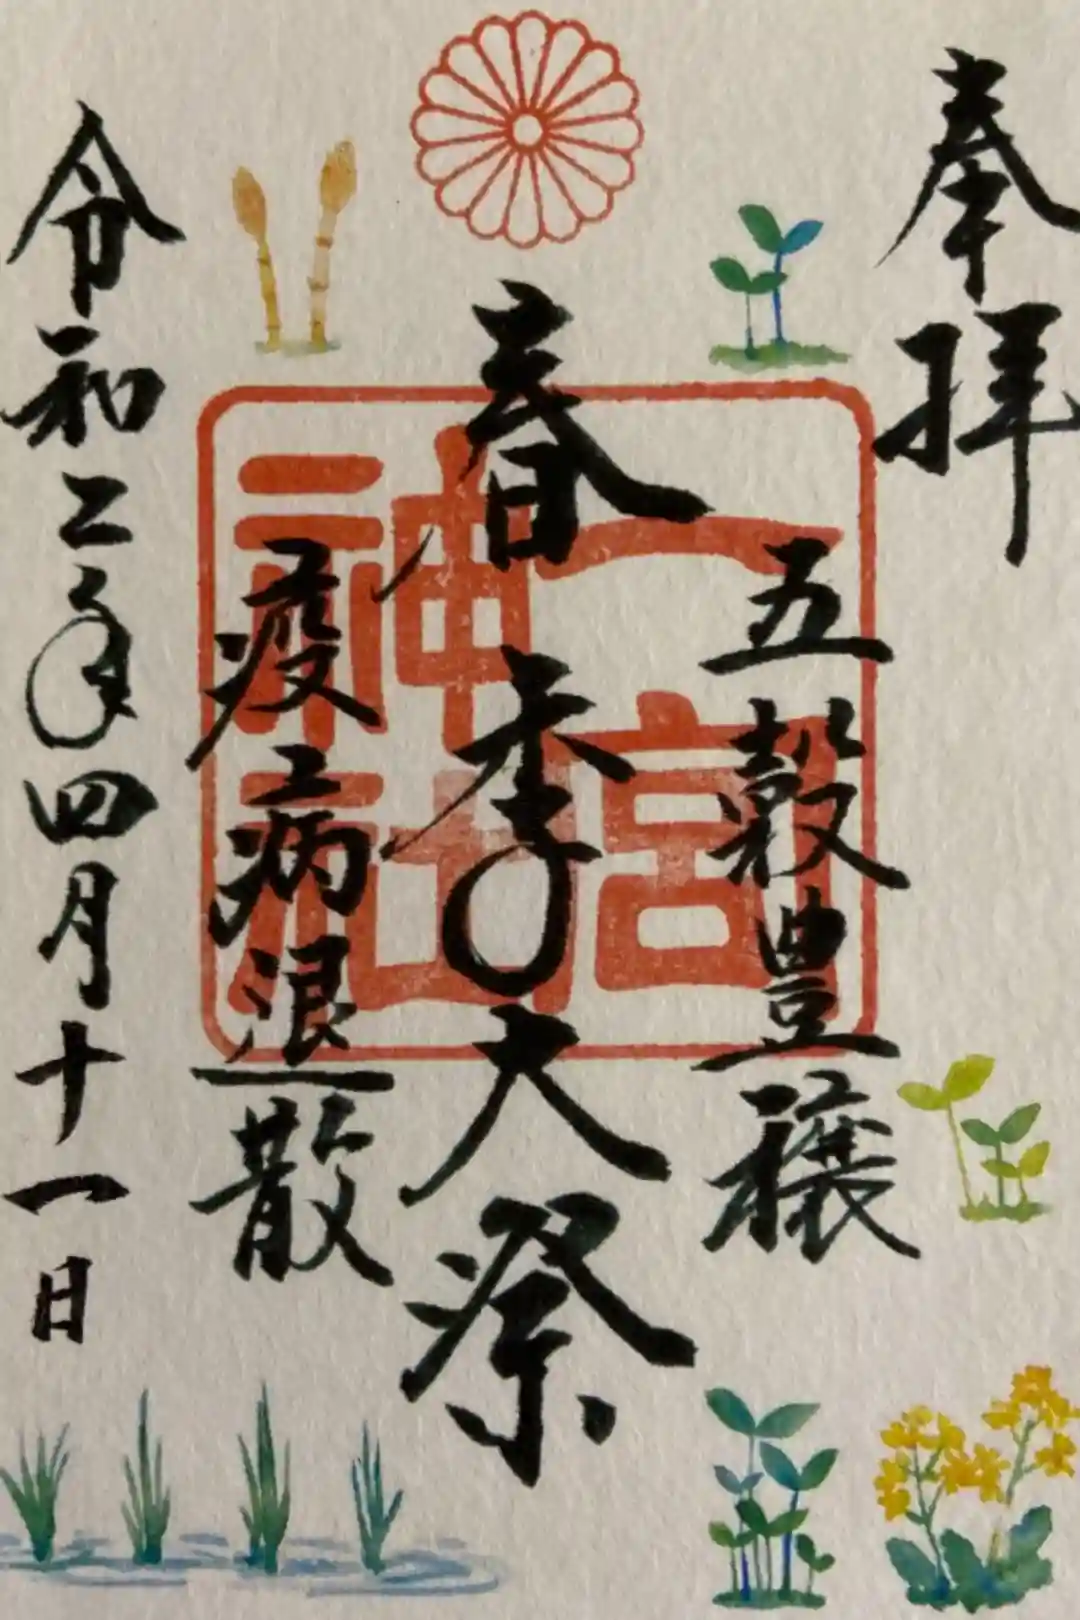 奉拝
五穀豊穣
春季大祭
疫病退散
令和二年四月十一日
一宮
神社